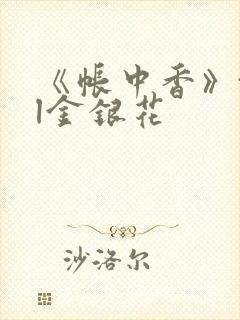 《帐中香》
l金银花
沙洛尔